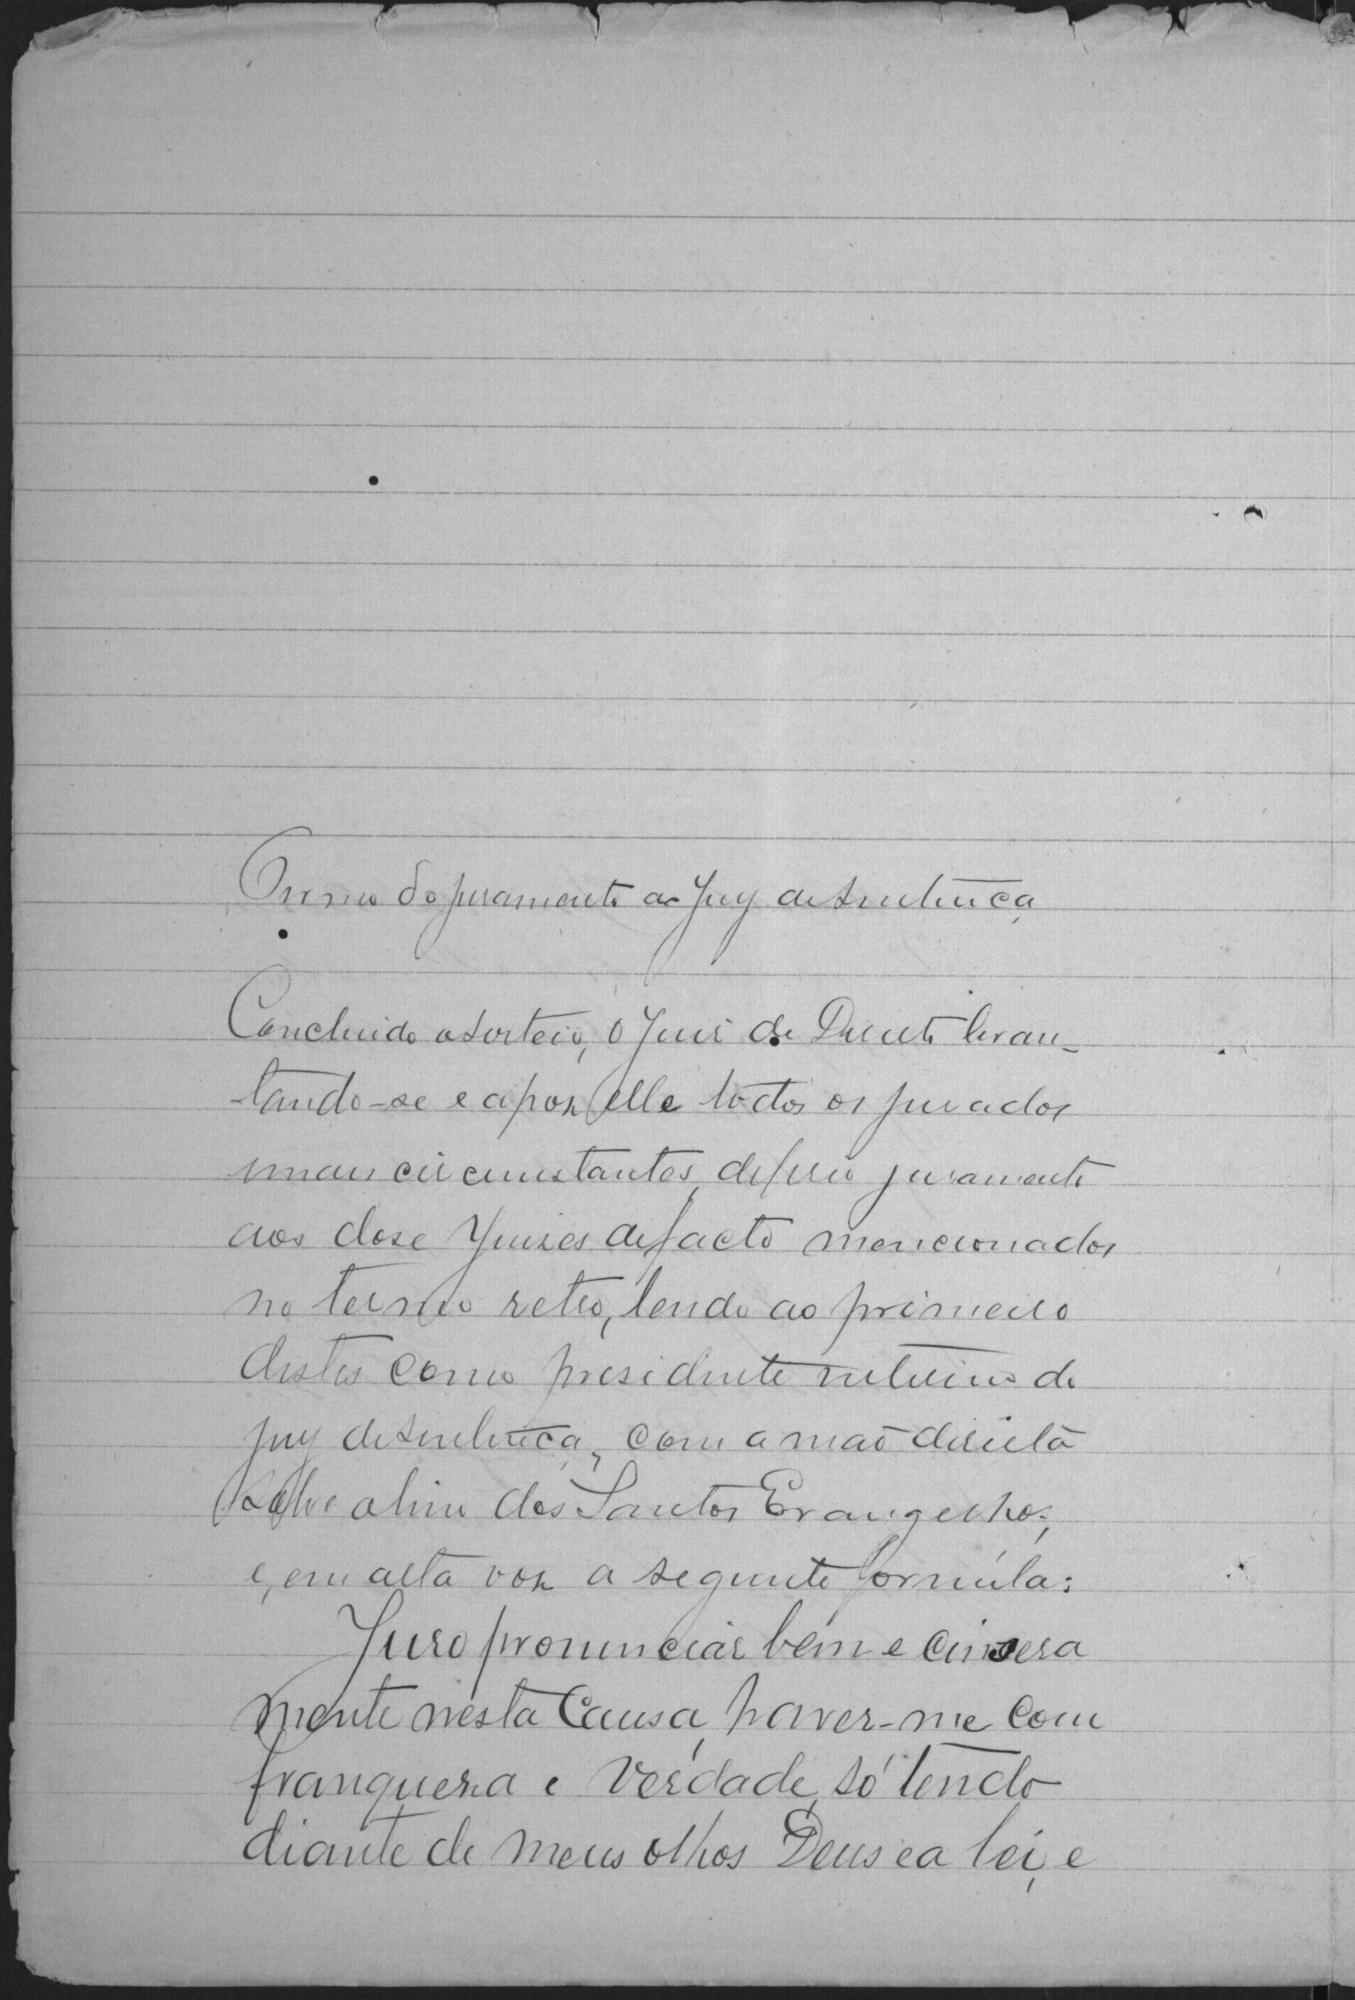 Termo do juramento ao Jury de Sentença
Concluido o sorteio, o Juis de Direito levan-
tando-se e apos elle todos os jurados
e mais circumstantes, deferio juramento
aos dose Juises de facto mencionados
no termo retro, lendo ao primeiro
destes como presidente interino do
jury de sentença, com a mão direita
sobre o livro dos Santos Evangelhos,
e, em alta vos a seguinte formula:
Juro pronunciar bem e cincera
mente nesta Causa, haver-me com
franquesa e verdade, só tendo
diante de meus olhos Deus e a lei, e